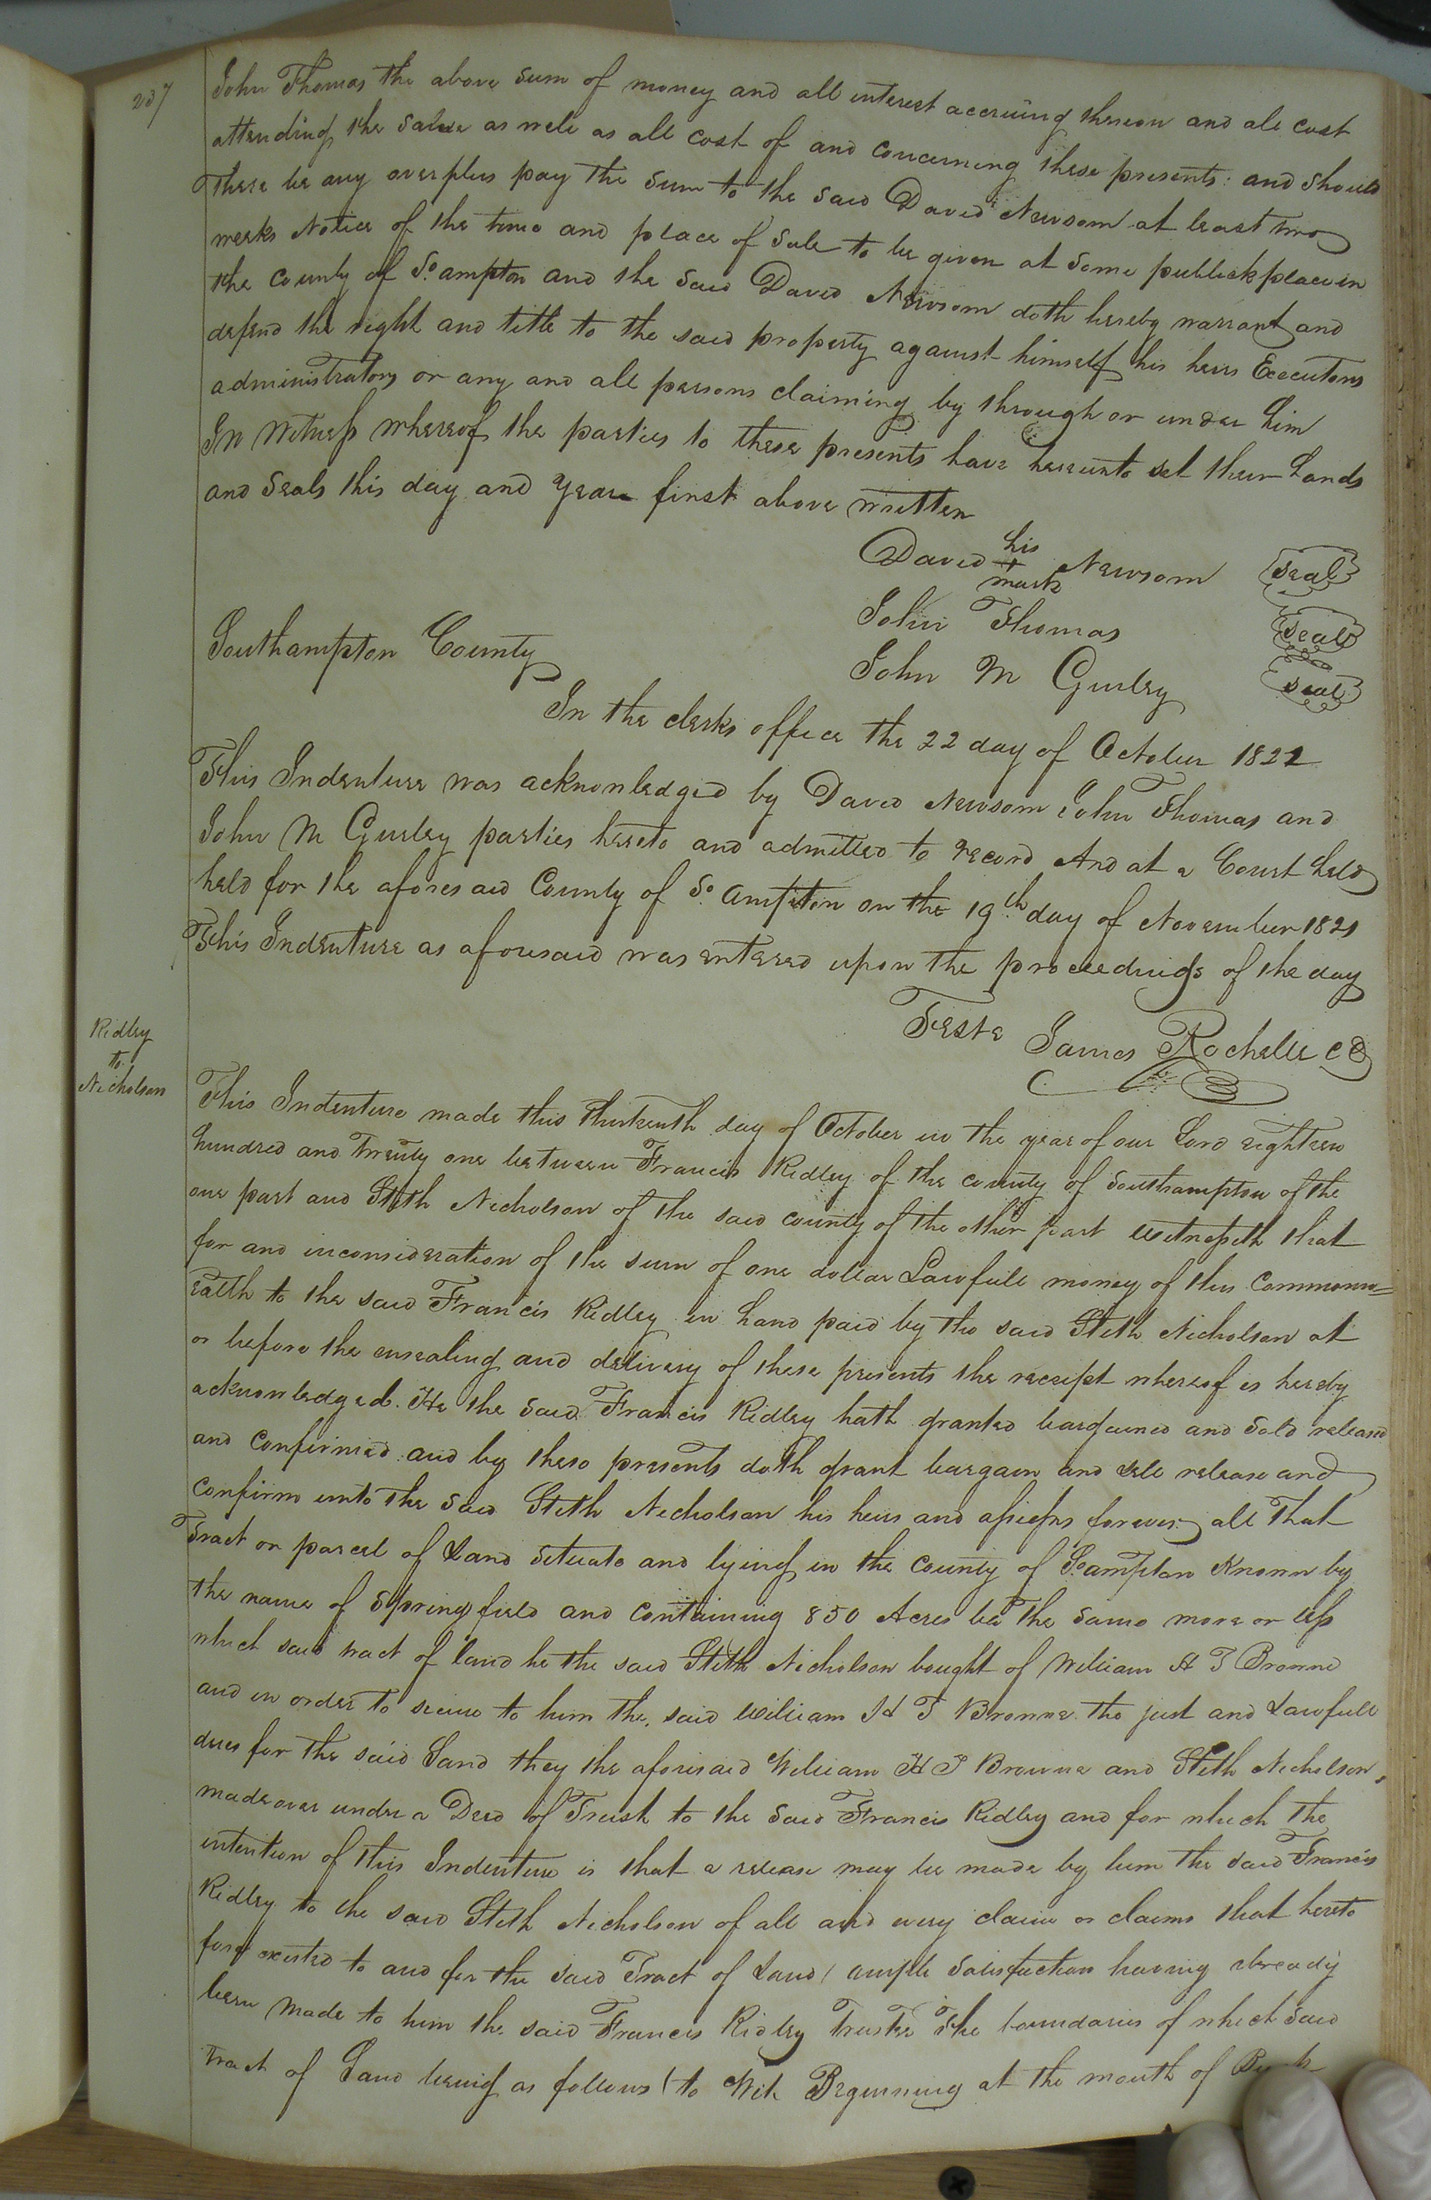 237
John Thomas the above sum of money and all interest accruing thereon and all cost
attending the salee as well as all cost of and concerning these presents: and should
There be any overplus pay the sum to the said David Newsom at least two
weeks Notice of the time and place of Sale to be given at some publick place in
the county of So.ampton and the said David Newsom doth hereby warrant and
defend the right and title to the said property against himself his heirs Executors
administrators or any and all persons claiming by through or under him
In Witness whereof the parties to these presents have hereunto set their hands
and Seals this day and year first above written
David his + mark Newsom Seal
John Thomas Seal
John M Gurley Seal
Southampton County
In the clerks office the 22 day of October 1821
This Indenture was acknowledged by David Newsom John Thomas and
John M Gurley parties hereto and admitted to record And at a Court held
held for the aforesaid County of So.ampton on the 19th day of November 1821
This Indenture as aforesaid was entered upon the proceedings of the day
Teste James Rochelle CC
Ridley
to
Nicholson
This Indenture made this thirteenth day of October in the year of our Lord eighteen
hundred and twenty one between Francis Ridley of the county of Southampton of the
one part and Stith Nicholson of the said county of the other part Witnesseth that
for and inconsideration of the sum of one dollar Lawfull money of this Commonw=
ealth to the said Francis Ridley in hand paid by the said Stith Nicholson at
or before the ensealing and delivery of these presents the receipt whereof is hereby
acknowledged. He the said Francis Ridley hath granted bargained and sold released
and confirmed and by these presents doth grant bargain and sell release and
confirm unto the said Stith Nicholson his heirs and assigns forever all that
Tract or parcel of Land situate and lying in the county of So.ampton Known by
the name of Springfield and containing 850 Acres be the same more or less
which said tract of land he the said Stith Nicholson bought of William H T Browne
and in order to secure to him the said William H T Browne the just and Lawfull
dues for the said Land they the aforesaid William H T Browne and Stith Nicholson
made over under a Deed of Trust to the said Francis Ridley and for which the
intention of this Indenture is that a release may be made by him the said Francis
Ridley to the said Stith Nicholson of all and every claim or claims that hereto
fore existed to and for the said Tract of Land (ample satisfaction having already
been made to him the said Francis Ridley Trustee The boundaries of which said
tract of Land being as follows (to Wit Beginning at the mouth of